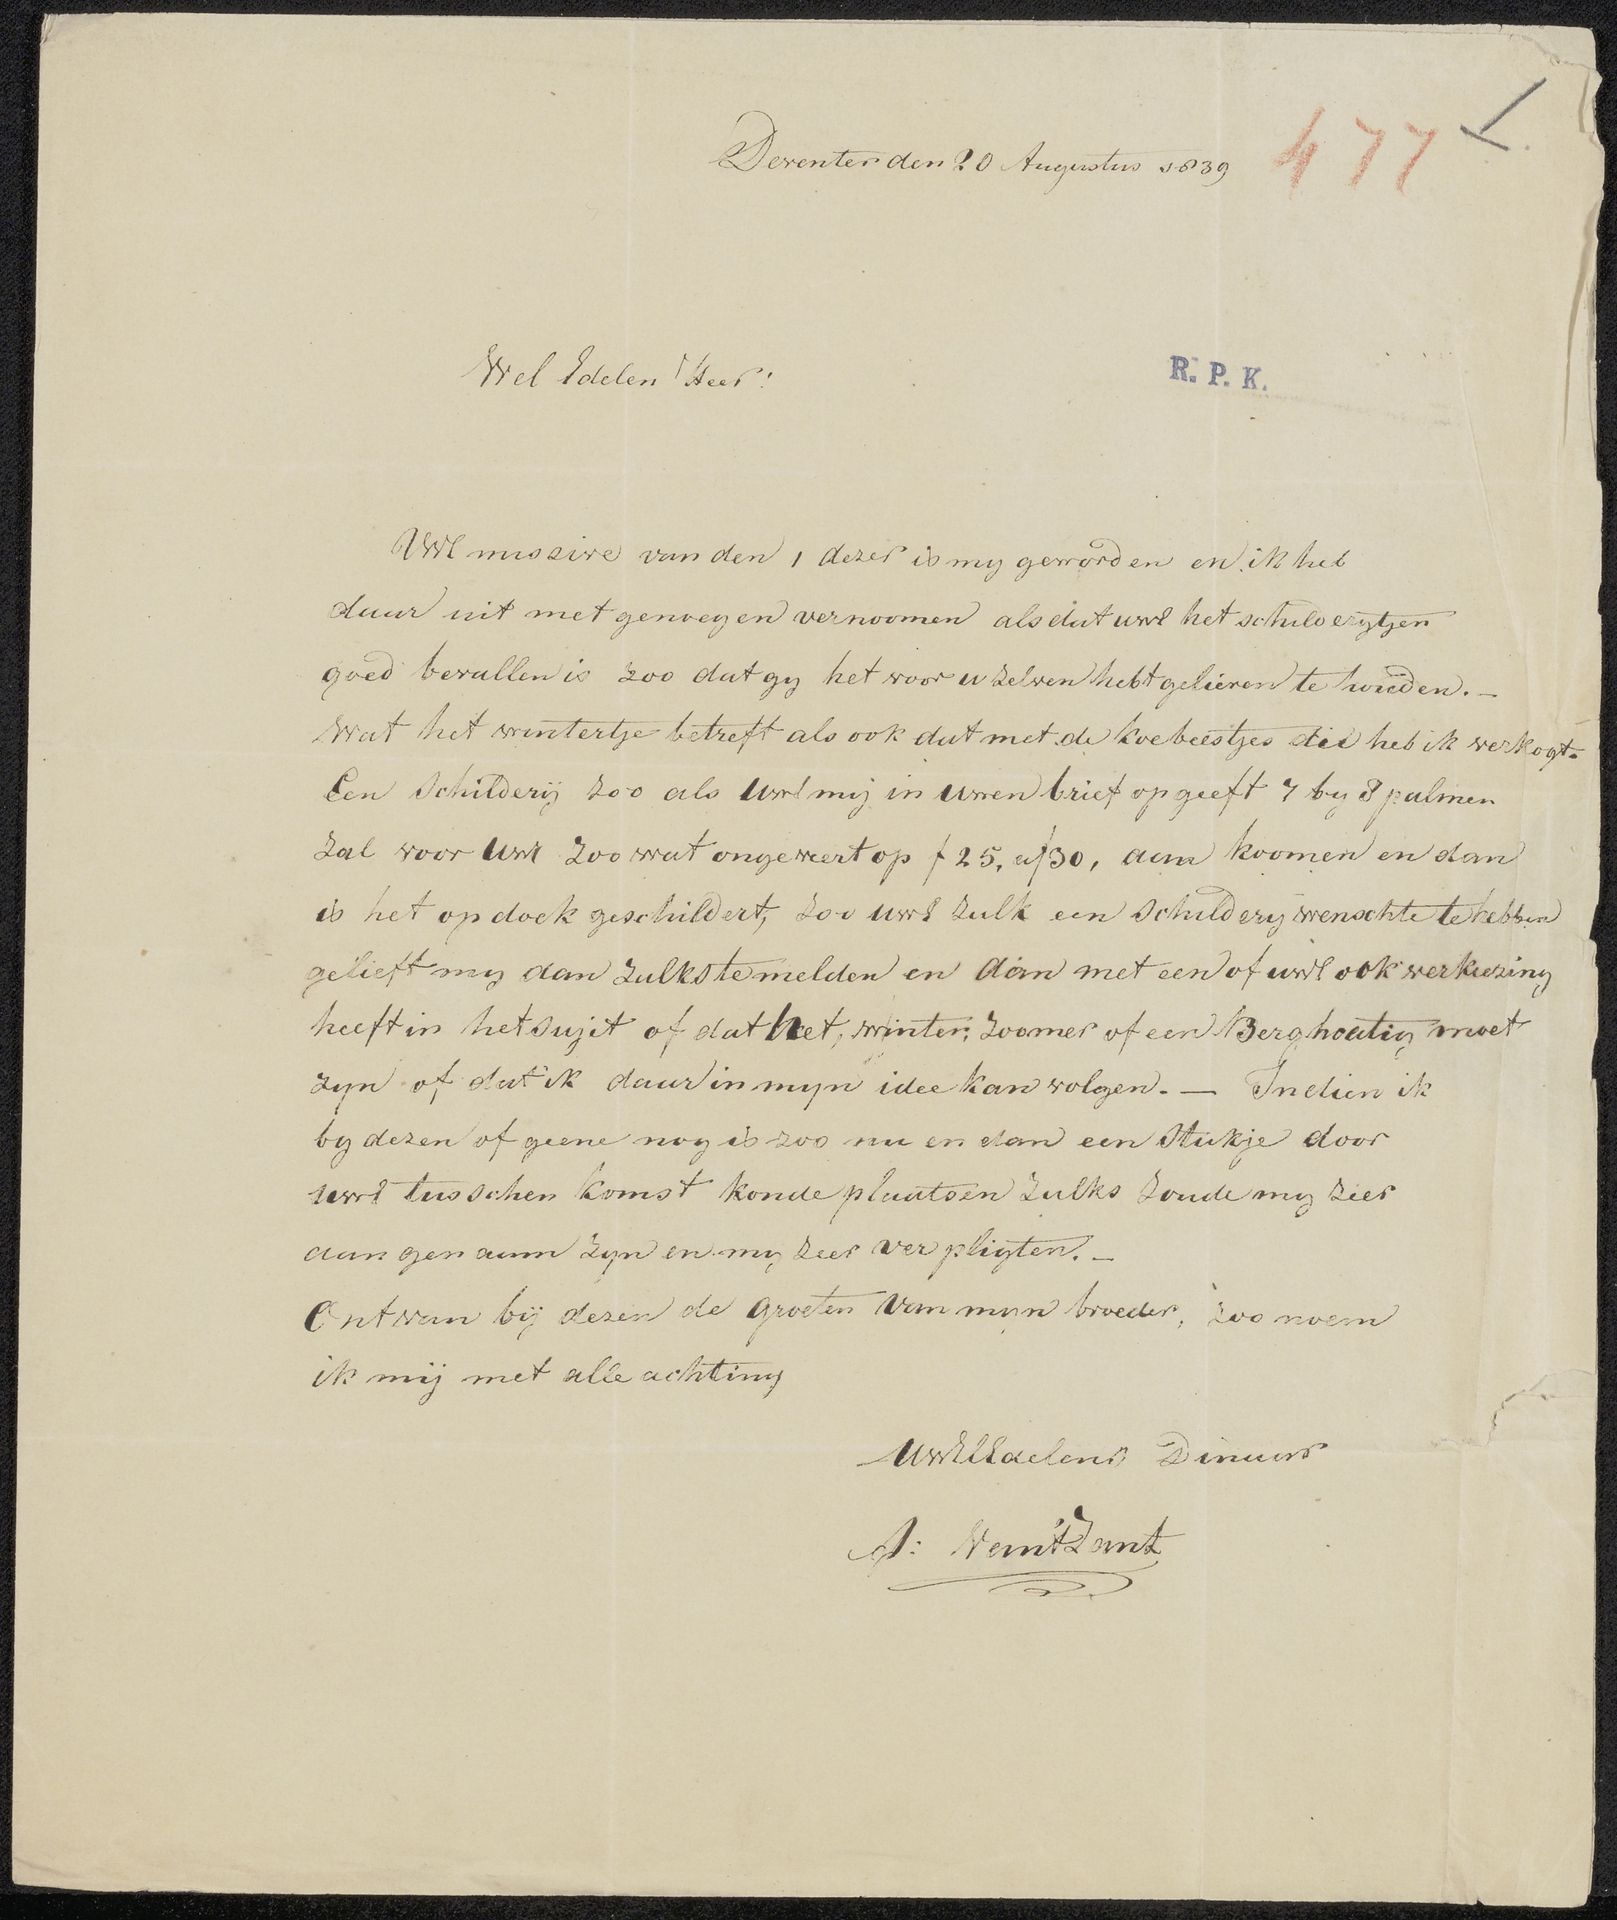 Deventer den 20 Augustus 1839
477
Wel Edelen Heer!
R. P. K.
UWE missive van den 1 dezer is my geworden en ik heb
daar uit met genoegen vernoomen als dat uwE het schilderytjen
goed bevallen is zoo dat gy het voor u zelven hebt gelieven te houden. —
Wat het wintertje betreft als ook dat met de koebeestjes die heb ik verkogt.
Een Schilderij zoo als UwE mij in uwen brief op geeft 7 by 8 palmen
zal voor UwE zoo wat ongeveert op f 25, a f 30, aan koomen en dan
is het op doek geschildert, zoo uwE zulk een Schildery wenschte te hebben
gelieft my dan zulks te melden en dan met een of uwE ook verkiezing
heeft in het sujit of dat het, winter, zoomer of een Berghoatig moet
zyn of dat ik daar in myn idee kan volgen. — Indien ik
by dezen of geene nog is zoo nu en dan een Stukje door
uwE tusschen komst konde plaatsen zulks zoude my zeer
aan genaam zyn en my zeer ver pligten. —
Ontvan bij dezen de groeten van myn broeder, zoo noem
ik mij met alle achting
UwEEdelens Dinaar
A: Van't Zant